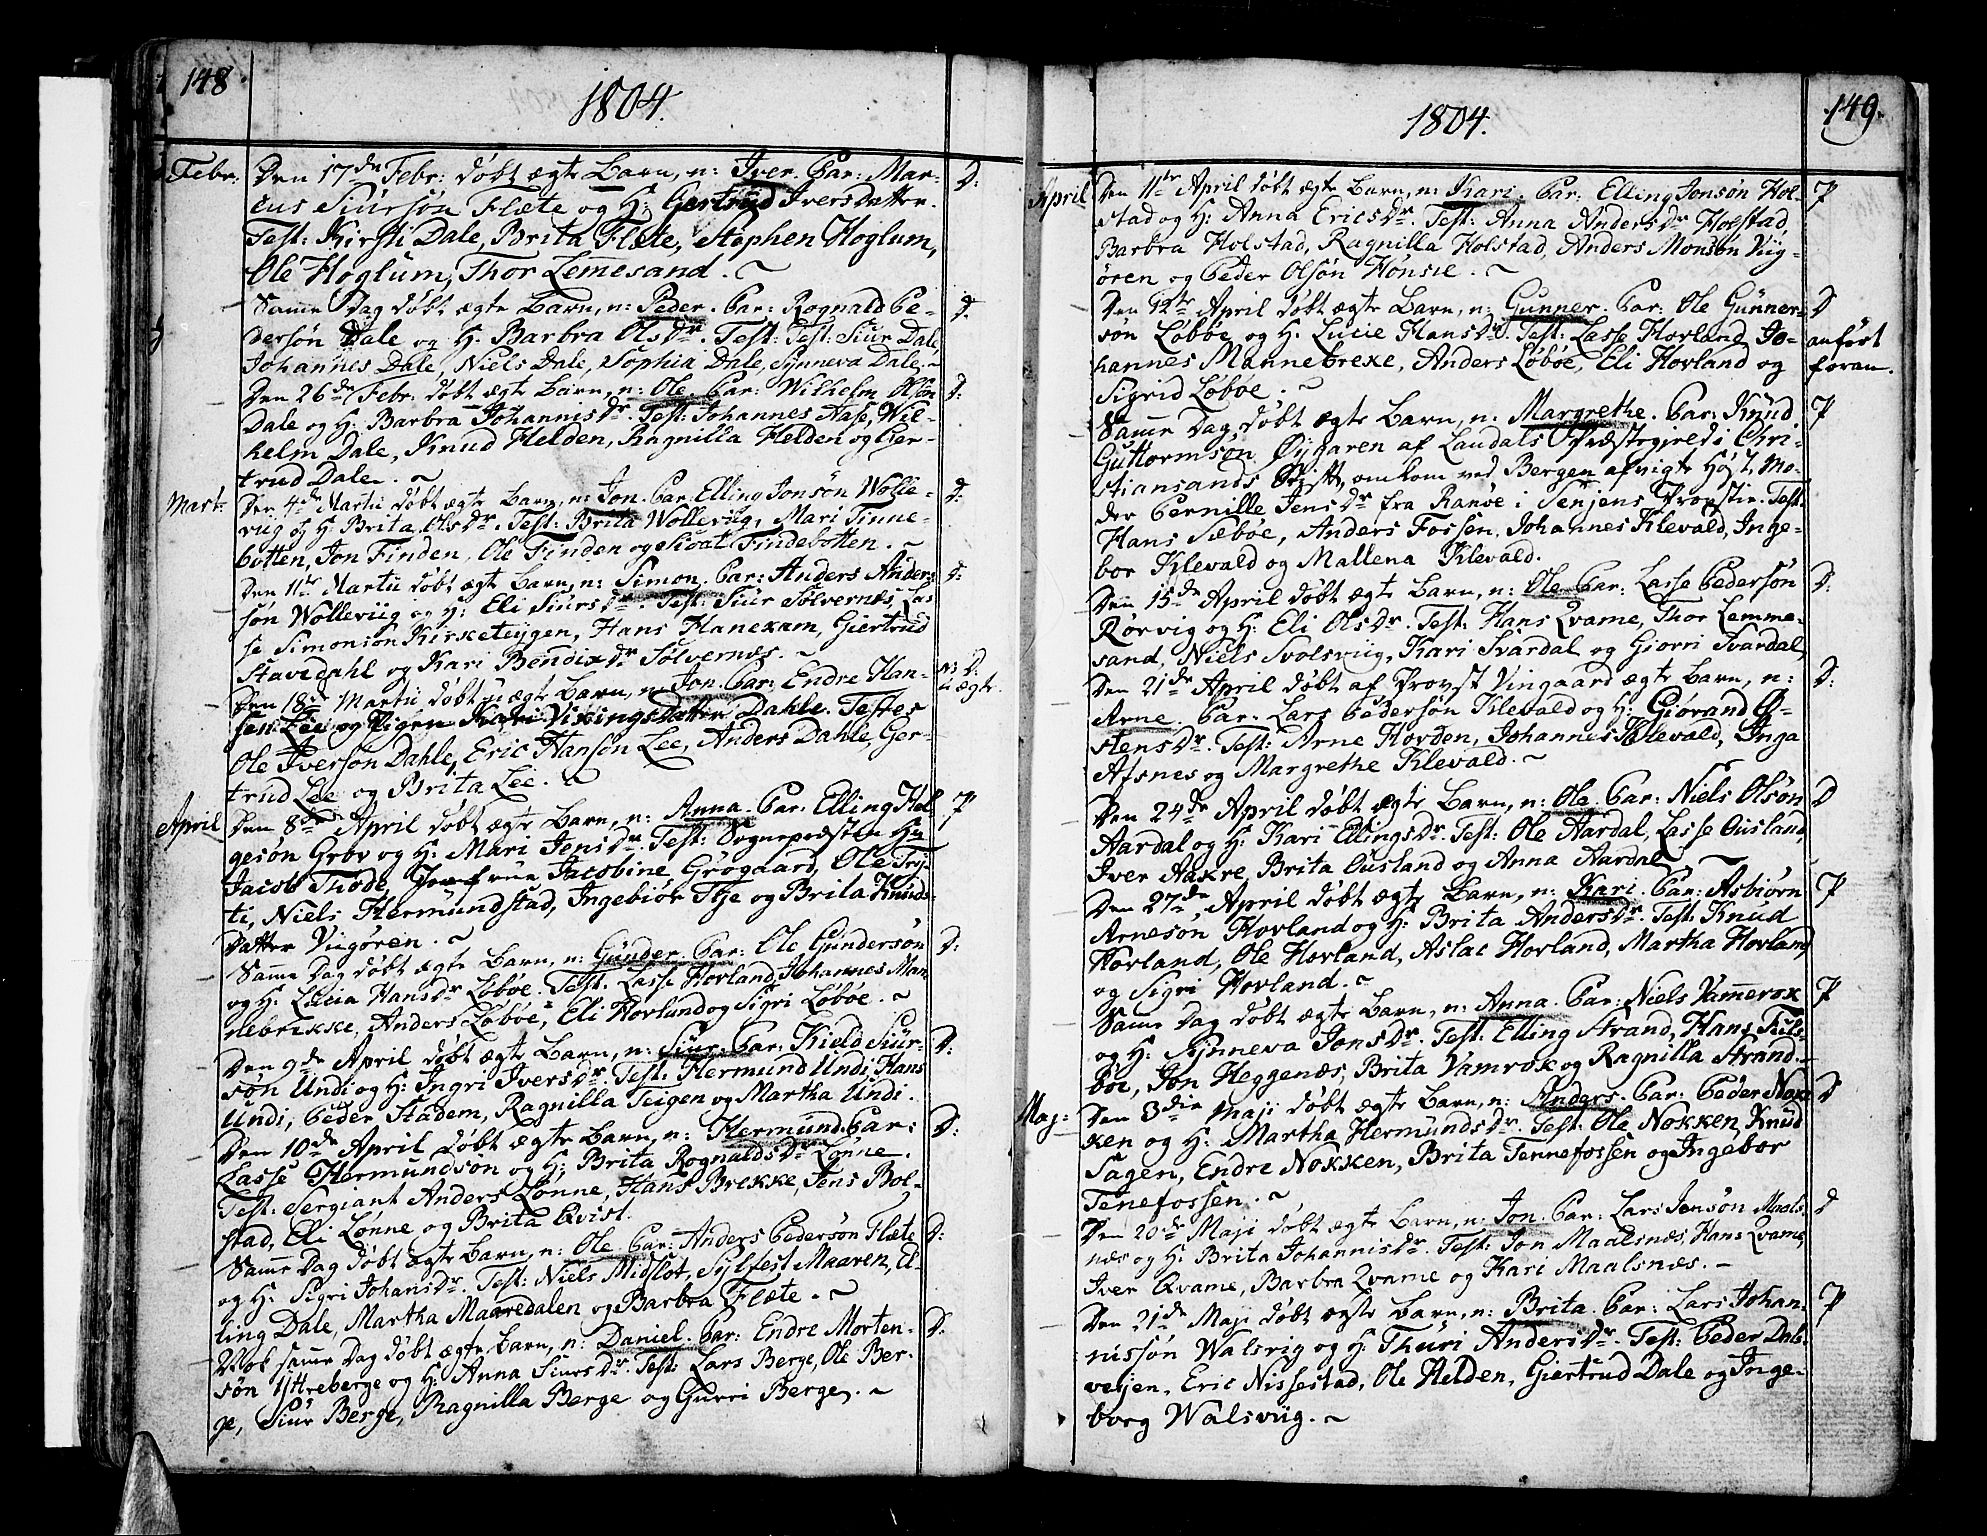 148
1804.
Febr: Den 17de Febr: døbt ægte Barn, n: Iver. Par: Mar- D:
cus Siursøn Flæte og H: Gertrud IversDatter.
Test: Kirsti Dale, Brita Flæte, Stephen Hoglum,
Ole Hoglum, Thor Lemesand. ~
Samme Dag døbt ægte Barn, n: Peder. Par: Rognald Pe- D:
dersøn Dale og H: Barbra OlsDr. Test: Test: Siur Dale,
Johannes Dale, Niels Dale, Sophia Dale, Synneva Dale. ~
Den 26de Febr: døbt ægte Barn, n: Ole. Par: Wilhelm Olsøn D:
Dale og H: Barbra JohannisDr. Test: Johannes Aase, Wil-
helm Dale, Knud Helden, Ragnilla Helden og Ger-
trud Dale. ~
Mart: Den 4de Martii døbt ægte Barn, n: Jon. Par: Elling Jonsøn Wolle- D:
viig og H: Brita OlsDr. Test: Brita Wolleviig, Mari Finne-
botten, Jon Finden, Ole Finden og Sivat Findebotten. ~
Den 11te Martii døbt ægte Barn, n: Simon. Par: Anders Anders- D:
søn Wolleviig og H: Eli SiursDr. Test: Siur Sølvernæs, Las-
se Simonsøn Kirketeygen, Hans Hanekam, Giertrud
Stavedahl og Kari BendixDr Sølvernæs. ~
Den 18de Martii døbt uægte Barn, n: Jon. Par: Endre Han- NB D:
sen Lee og Pigen Kari VikingsDatter Dahle. Testes uægte.
Ole Iversøn Dahle, Eric Hansøn Lee, Anders Dahle, Ger-
trud Lee og Brita Lee. ~
April Den 8de April døbt ægte Barn, n: Anna. Par: Elling Hel P
gesøn Grov og H: Mari JensDr. Test: Sognepræsten Hr
Jacob Thode, Jomfrue Jacobine Grøgaard, Ole Try-
ti, Niels Hermundstad, Ingebiør Thie og Brita Knuds-
Datter Viigøren. ~
Samme Dag døbt ægte Barn, n: Gunder. Par: Ole Gundersøn D:
og H: Lucia HansDr Løbøe. Test. Lasse Hovland, Johannes Man-
nebrikke, Anders Løbøe, Eli Hovlund og Sigri Løbøe. ~
Den 9de April døbt ægte Barn, n: Siur. Par: Kield Siur- D:
søn Undi og H: Ingri IversDr. Test: Hermund Undi, Hans
Undi, Peder Stadem, Ragnilla Teigen og Martha Undi.
Den 10de April døbt ægte Barn, n: Hermund. Par: D:
Lasse Hermundsøn og H: Brita RognaldsDr Lønne.
Test: Sergiant Anders Lønne, Hans Brekke, Jens Bol-
stad, Eli Lønne og Brita Qvist.
Samme Dag døbt ægte Barn, n: Ole. Par: Anders Pedersøn Flæte D:
og H: Sigri JohansDr. Test: Niels Midslot, Sylfest Maaren, El-
ling Dale, Martha Maaredalen og Barbra Flæte. ~
Nok samme Dag døbt ægte Barn, n: Daniel. Par: Endre Morten- D:
søn Yttreberge og H: Anna SiursDr. Test: Lars Berge, Ole Ber-
ge, Siur Berge, Ragnilla Berge og Gurri Berge. ~
149.
1804.
April Den 11te April døbt ægte Barn, n: Kari. Par: Elling Jonsøn Hol- P
stad og H: Anna EricsDr. Test: Anna AndersDr Holstad,
Barbra Holstad, Ragnilla Holstad, Anders Monsøn Viig-
øren og Peder Olsøn Hønsie. ~
Den 12te April døbt ægte Barn, n: Gunner. Par: Ole Gunner- D
søn Løbøe og H: Lucie HansDr. Test: Lasse Hovland, Jo- anført
hannes Mannebrexe, Anders Løbøe, Eli Hovland og foran.
Sigrid Løboe. ~
Samme Dag døbt ægte Barn, n: Margrethe. Par: Knud P
Guttormsøn Øygaren af Laudals Præstegjeld i Chri-
stiansands Stift, omkom ved Bergen afvigte Høst, Mo-
der Pernille JensDr fra Ranøe i Senjens Provstie. Test:
Hans Sæbøe, Anders Fossen, Johannes Klevald, Inge-
bor Klevald og Mallena Klevald.
Den 15de April døbt ægte Barn, n: Ole. Par: Lasse Pedersøn D:
Rørvig og H: Eli OlsDr. Test: Hans Qvame, Thor Lemme-
sand, Niels Svolsviig, Kari Svardal og Giorri Svardal,
Den 21de April døbt af Provst Vingaard ægte Barn, n: D:
Arne. Par: Lars Pedersøn Klevald og H: Giørand Ø-
stensDr. Test: Arne Hovden, Johannes Klevald, Inga
Afsnes og Margrethe Klevald. ~
Den 24de April døbt ægte Barn, n: Ole. Par: Niels Olsøn D
Aardal og H: Kari EllingsDr. Test: Ole Aardal, Lasse Ousland,
Iver Aakre, Brita Ousland og Anna Aardal. ~
Den 27de April døbt ægte Barn, n: Kari. Par: Asbiørn P
Arnesøn Hovland og H: Brita AndersDr. Test: Knud
Hovland, Ole Hovland, Aslac Hovland, Martha Hovland
og Sigri Hovland. ~
Samme Dag døbt ægte Barn, n: Anna. Par: Niels Vamerox P
og H: Synneva JonsDr. Test: Elling Strand, Hans Tule-
bøe, Jon Heggenæs, Brita Vamrox og Ragnilla Strand. ~
Maj: Den 3die Maji døbt ægte Barn, n: Anders. Par: Peder Nok- D
ken og H: Martha HermundsDr. Test: Ole Nokken, Knud
Sagen, Endre Nokken, Brita Tennefossen og Ingebor
Tenefossen. ~
Den 20de Maji døbt ægte Barn, n: Jon. Par: Lars Jensøn Maals- D
næs og H: Brita JohannisDr. Test: Jon Maalsnæs, Hans Qvame,
Iver Qvame, Barbra Qvame og Kari Maalsnæs. ~
Den 21de Maji døbt ægte Barn, n: Brita. Par: Lars Johan- P
nissøn Walsvig og H: Thuri AndersDr. Test: Peder Dals-
veijen, Eric Nissestad, Ole Helden, Giertrud Dale og Inge-
borg Walsviig. ~